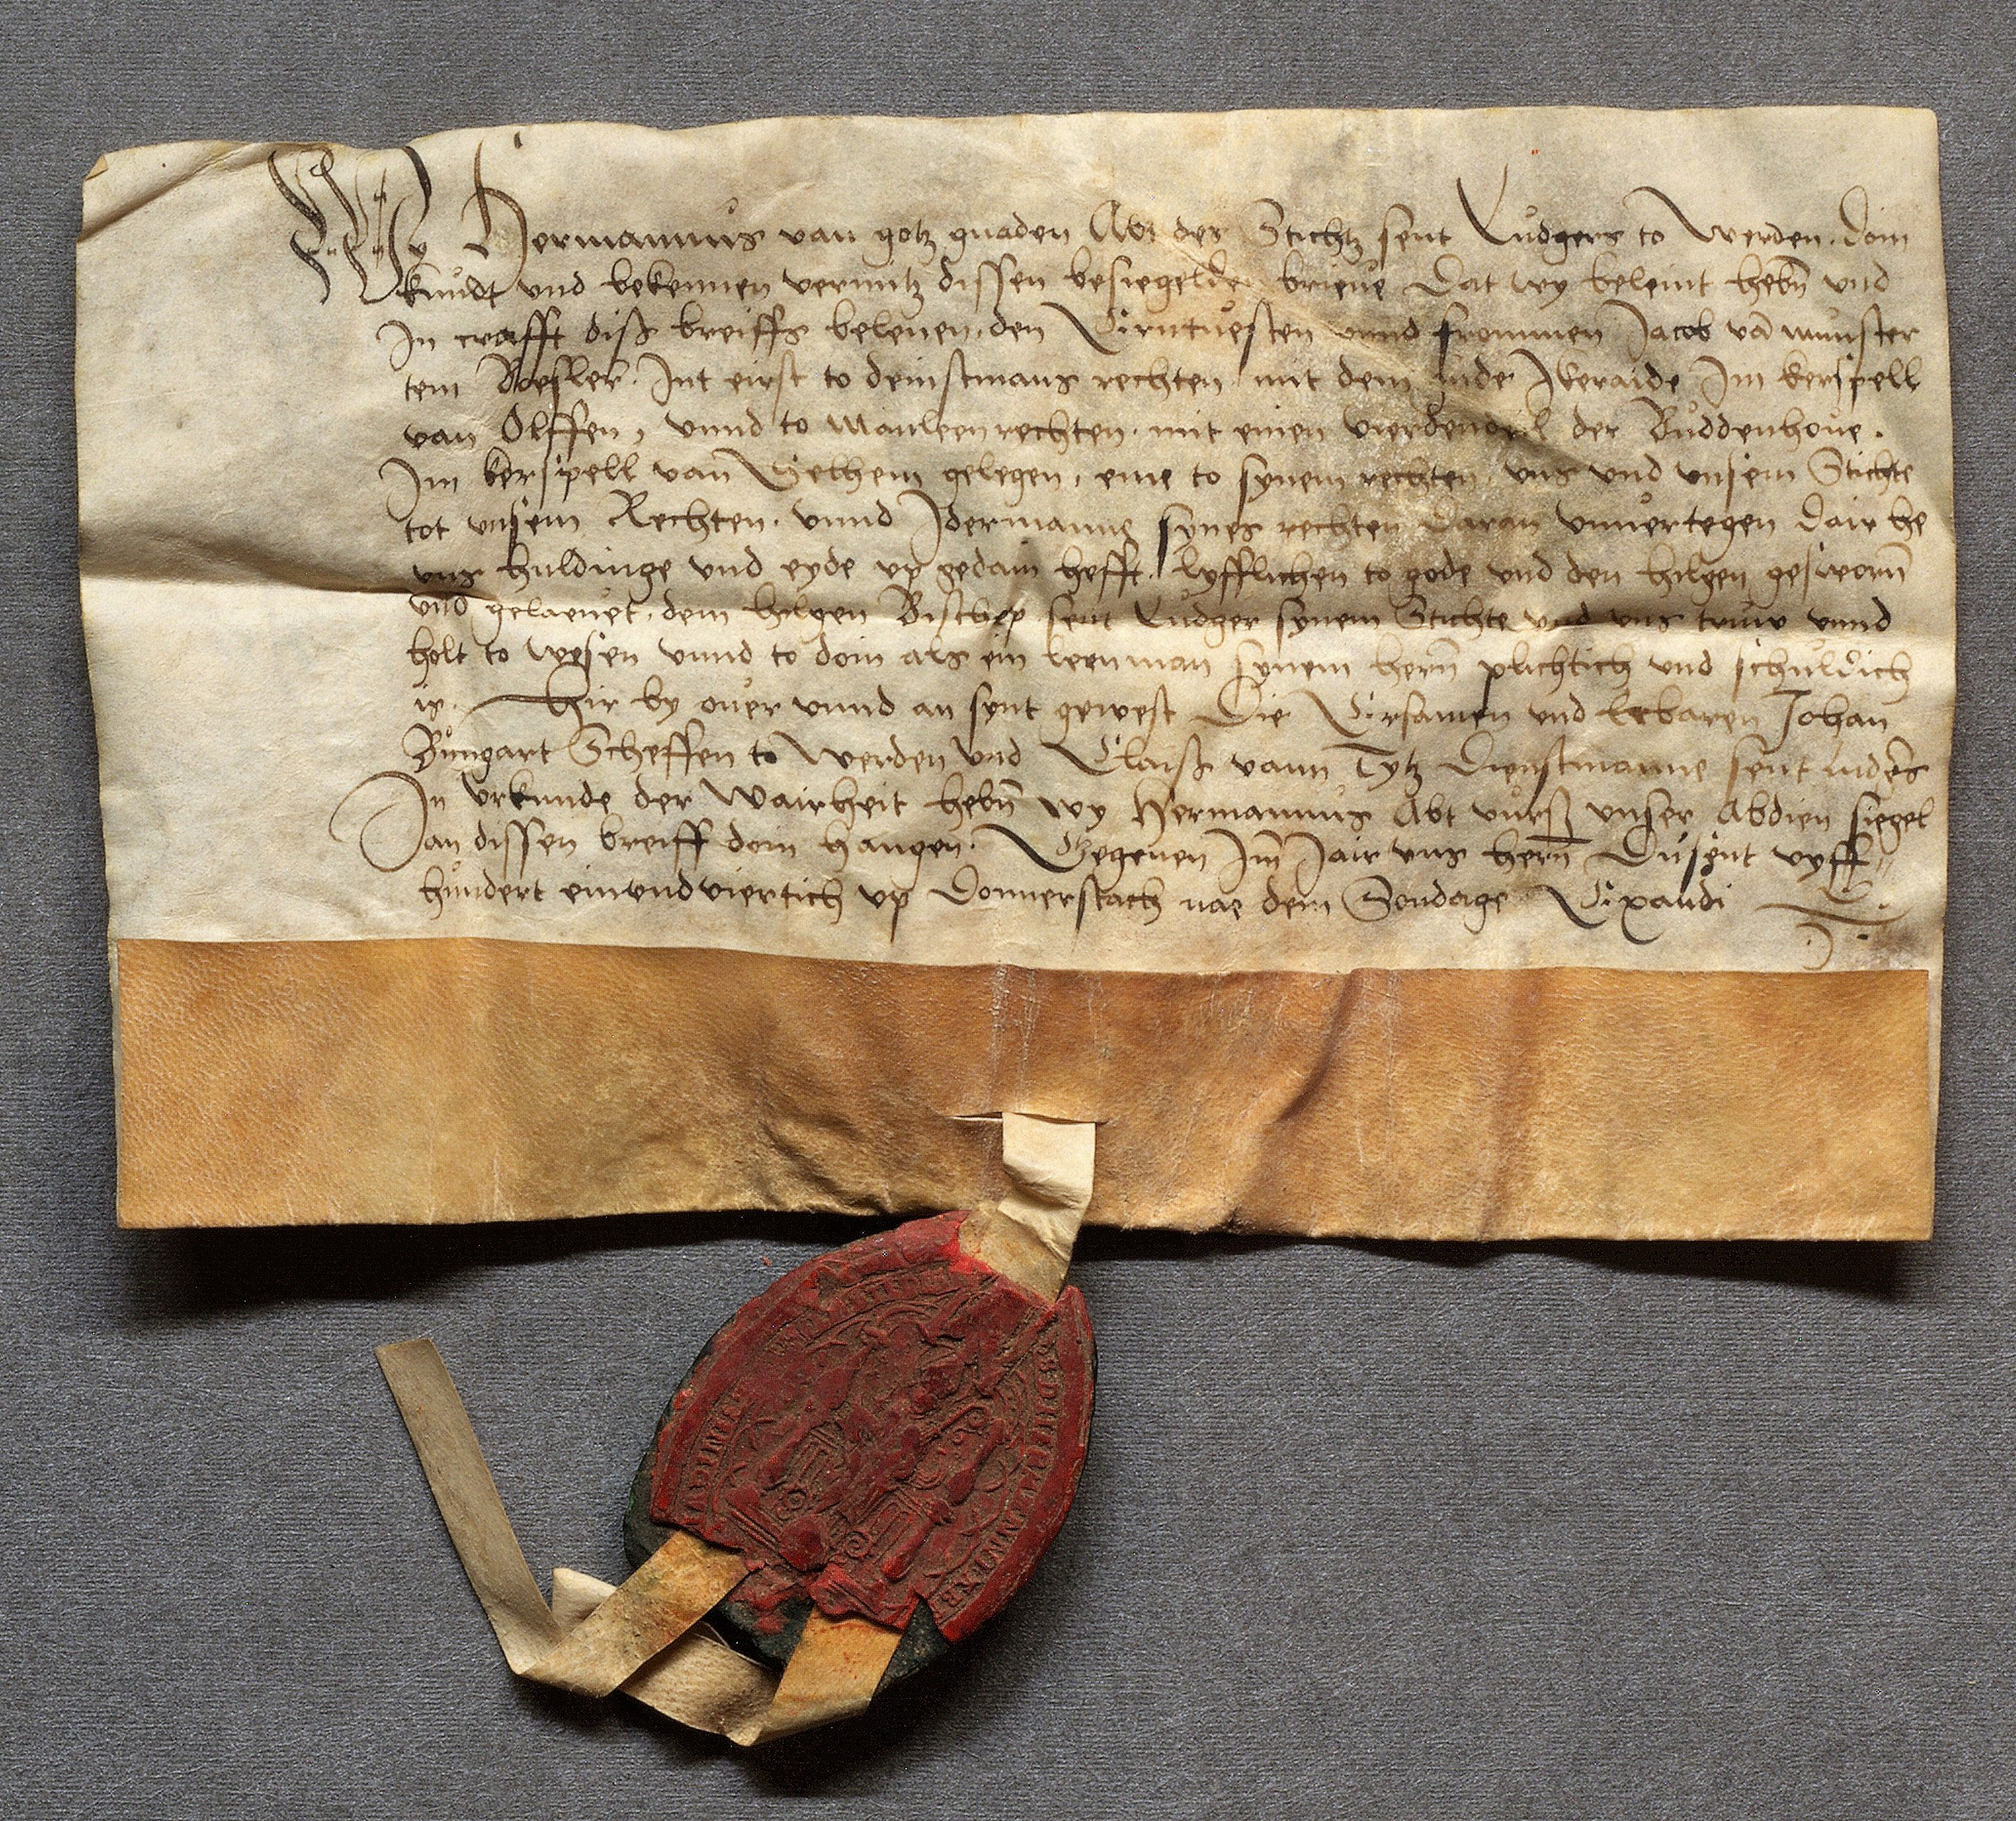 Wy Hermannus van gotz gnaden Abt des Stichtz sent Ludgers to Werden. doin
kundt und bekennen vermitz dissen besiegelden brieve Dat wy beleint hebn und
In crafft diß breiffs belenen. den Erntvesten unnd frommen Jacob vā munster
tem Int eirst to deinstmans rechten. mit dem Im kerspell
van Olffen, unnd to Manleen rechten. mit einen vierdendeil der Buddenhove.
Im kerspell van Sethem gelegen, eme to synem rechten, uns und unsem Stichte
tot unsem Rechten. unnd Idermanne synes rechten daran unvertegen dair he
uns huldinge und eyde up gedain hefft. lyfflichen to gode und den hilgen gesworn
und gelaevet. dem hilgen Bischop sent Ludger synem Stichte und uns truw unnd
holt to wesen unnd to doin als ein leenman synem hern plichtich und schuldich
is. Hir by over unnd an synt gewest Die Ersamen und Erbaren Johan
Bungart Scheffen to Werden und Claiß vann Tytz Dienstmanne sent Luders
In urkunde der wairheit hebn wy Hermannus Abt vurß unser Abdien siegel
an dissen breiff doin hangen. Gegeven Im Jair uns hern Dusent vyff
hundert einundviertich up Donnerstach nae dem Sondage Exaudi